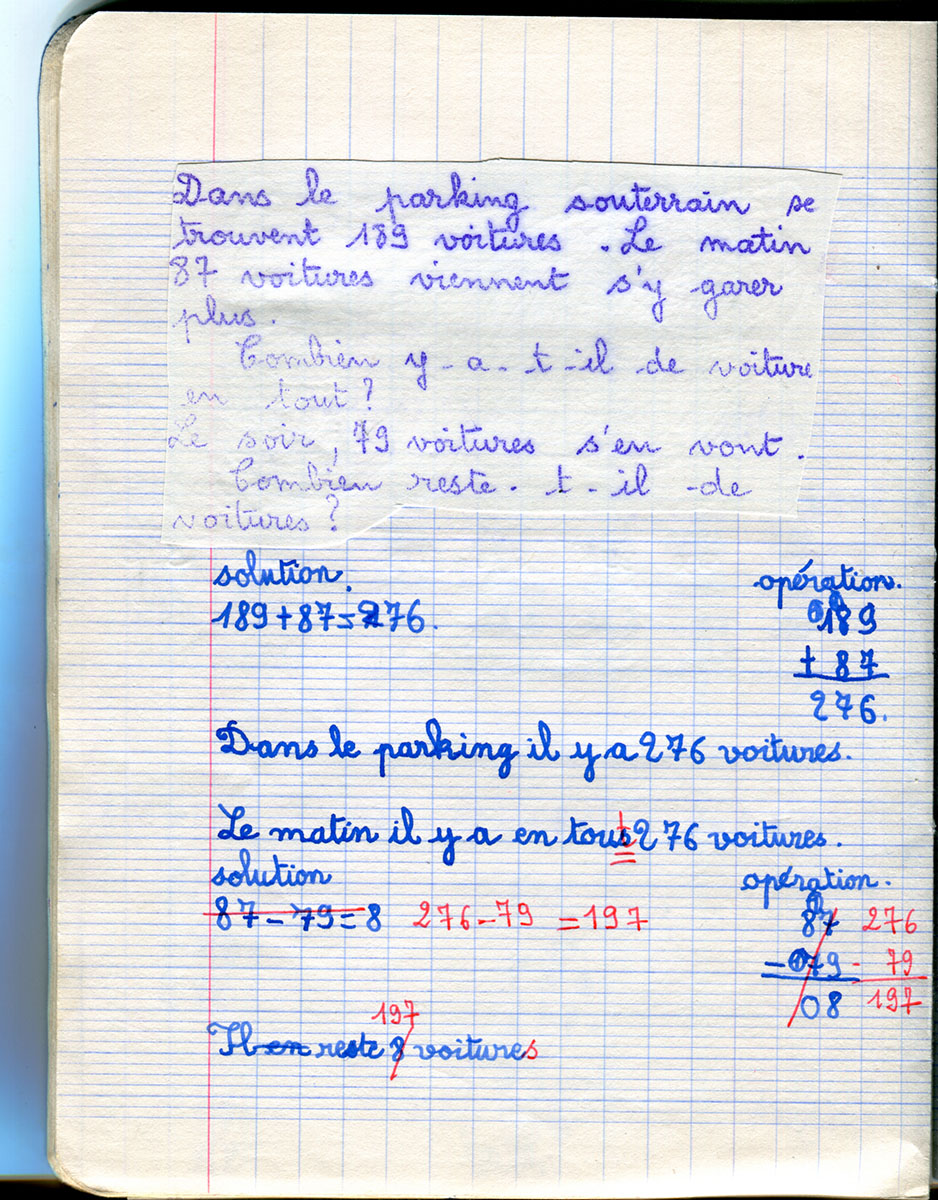 Dans le parking souterrain se
trouvent 189 voitures. Le matin
87 voitures viennent s'y garer
plus.
Combien y-a-t-il de voiture
en tout ?
Le soir, 79 voitures s'en vont.
Combien reste-t-il de
voitures ?
solution. opération.
189+87=276. 189
+ 87
276.
Dans le parking il y a 276 voitures.
Le matin il y a en tous t 276 voitures.
solution opération.
87-79=8 276-79 =197 87 276
-79 - 79
08 197
197
Il en reste 8 voitures